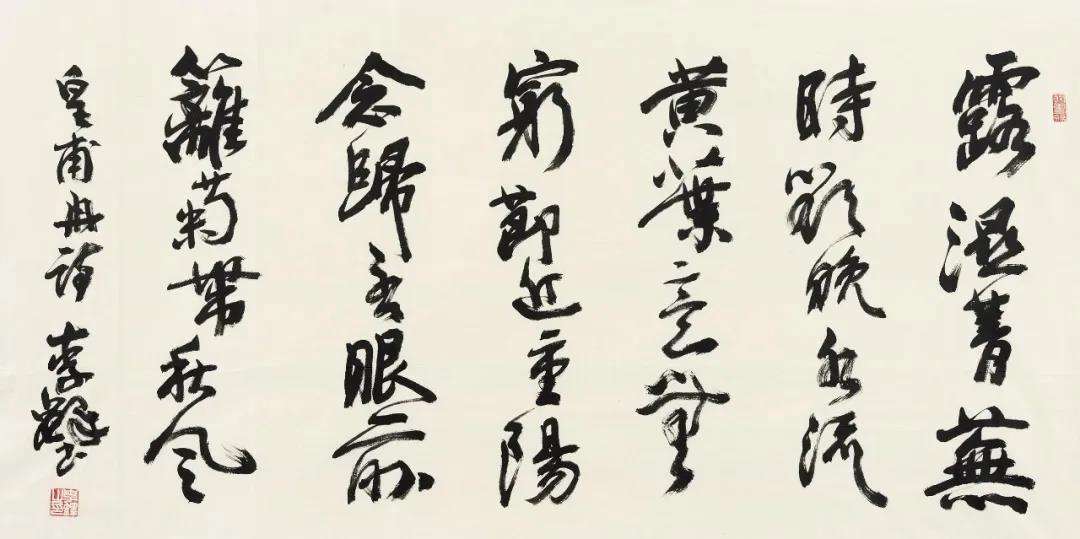 露濕菁蕪
時欲晚水流
黄葉意無
窮節近重陽
念歸否眼前
籬菊帶秋風
皇甫冉詩 李鐸书